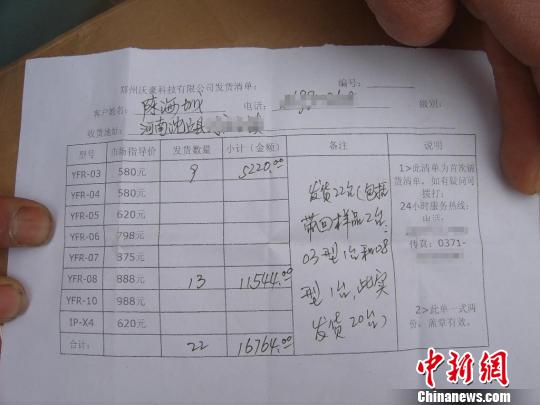 郑州沃豪科技有限公司发货清单: 编号:
客户姓名: 陈海 电话: 级别:
收货地址: 河南沈丘县
型号 市场指导价 发货数量 小计(金额) 备注 说明
YFR-03 580元 9 5220.00
YFR-04 580元
YFR-05 620元
YFR-06 798元
YFR-07 375元
YFR-08 888元 13 11544.00
YFR-10 988元
IP-X4 620元
合计: 22 16764.00
发货22台(包括
带回样品2台.
03型1台和08
型1台,此实
发货20台)
1>此清单为首次铺
货清单,如有疑问可
拨打:
24小时服务热线:
电话:
传真:0371-
2>此单一式两
份,盖章有效。
中新网
www.chinanews.com